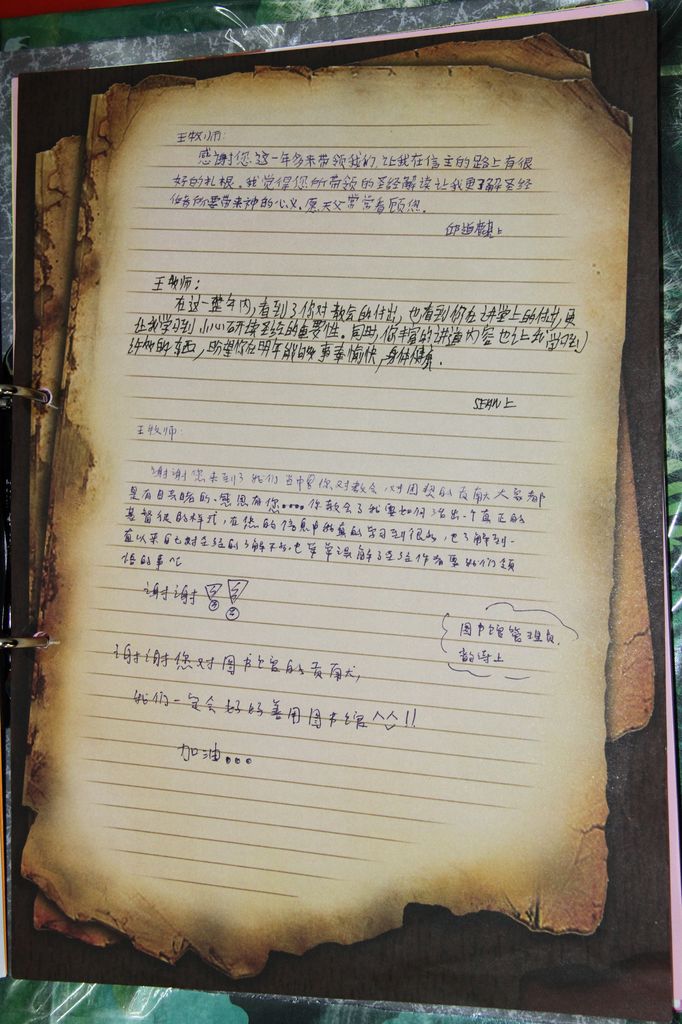 王牧师:
感谢您这一年多来带领我们,让我在信主的路上有很
好的扎根。我觉得您所带领的圣经解读让我更了解圣经
作者所要带来神的心义。愿天父常常看顾您。
邱 上
王牧师:
在这一整年内,看到了你对教会的付出,也看到你在讲堂上的付出,更
让我学习到小心研读圣经的重要性。同时,你丰富的讲道内容也让我学习到
许多的东西,盼望你在明年能够事事愉快,身体健康.
SEAN上
王牧师:
谢谢您来到了我们当中。你对教会,对团契的贡献大家都
是有目共睹的。感恩有您.... 你教会了我要如何活出一个真正的
基督徒的样式,在您的信息中我真的学习到很多,也了解到一
直以来自己对圣经的了解不多,也常常误解了圣经作者要我们领
悟的事。
谢谢!!
图书馆管理员,
诗上
谢谢您对图书馆的贡献,
我们一定会好好善用图书馆^^!!
加油...